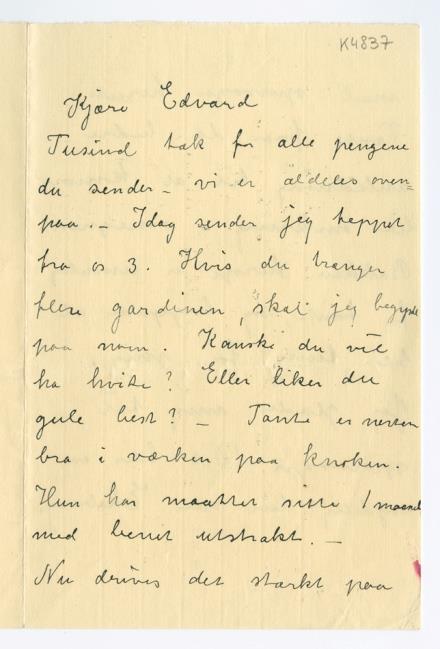 K4837
Kjære Edvard
Tusind tak for alle pengene
du sender – vi er aldeles oven=
paa. – Idag sender jeg teppet
fra os 3. Hvis du trænger
flere gardinen, skal jeg begynde
paa noen. Kanske du vil
ha hvite? Eller liker du
gule best? – Tante er nesten
bra i værken paa knoken.
Hun har maattet sitte 1 maaned
med benet utstrakt. –
Nu drives det stærkt paa